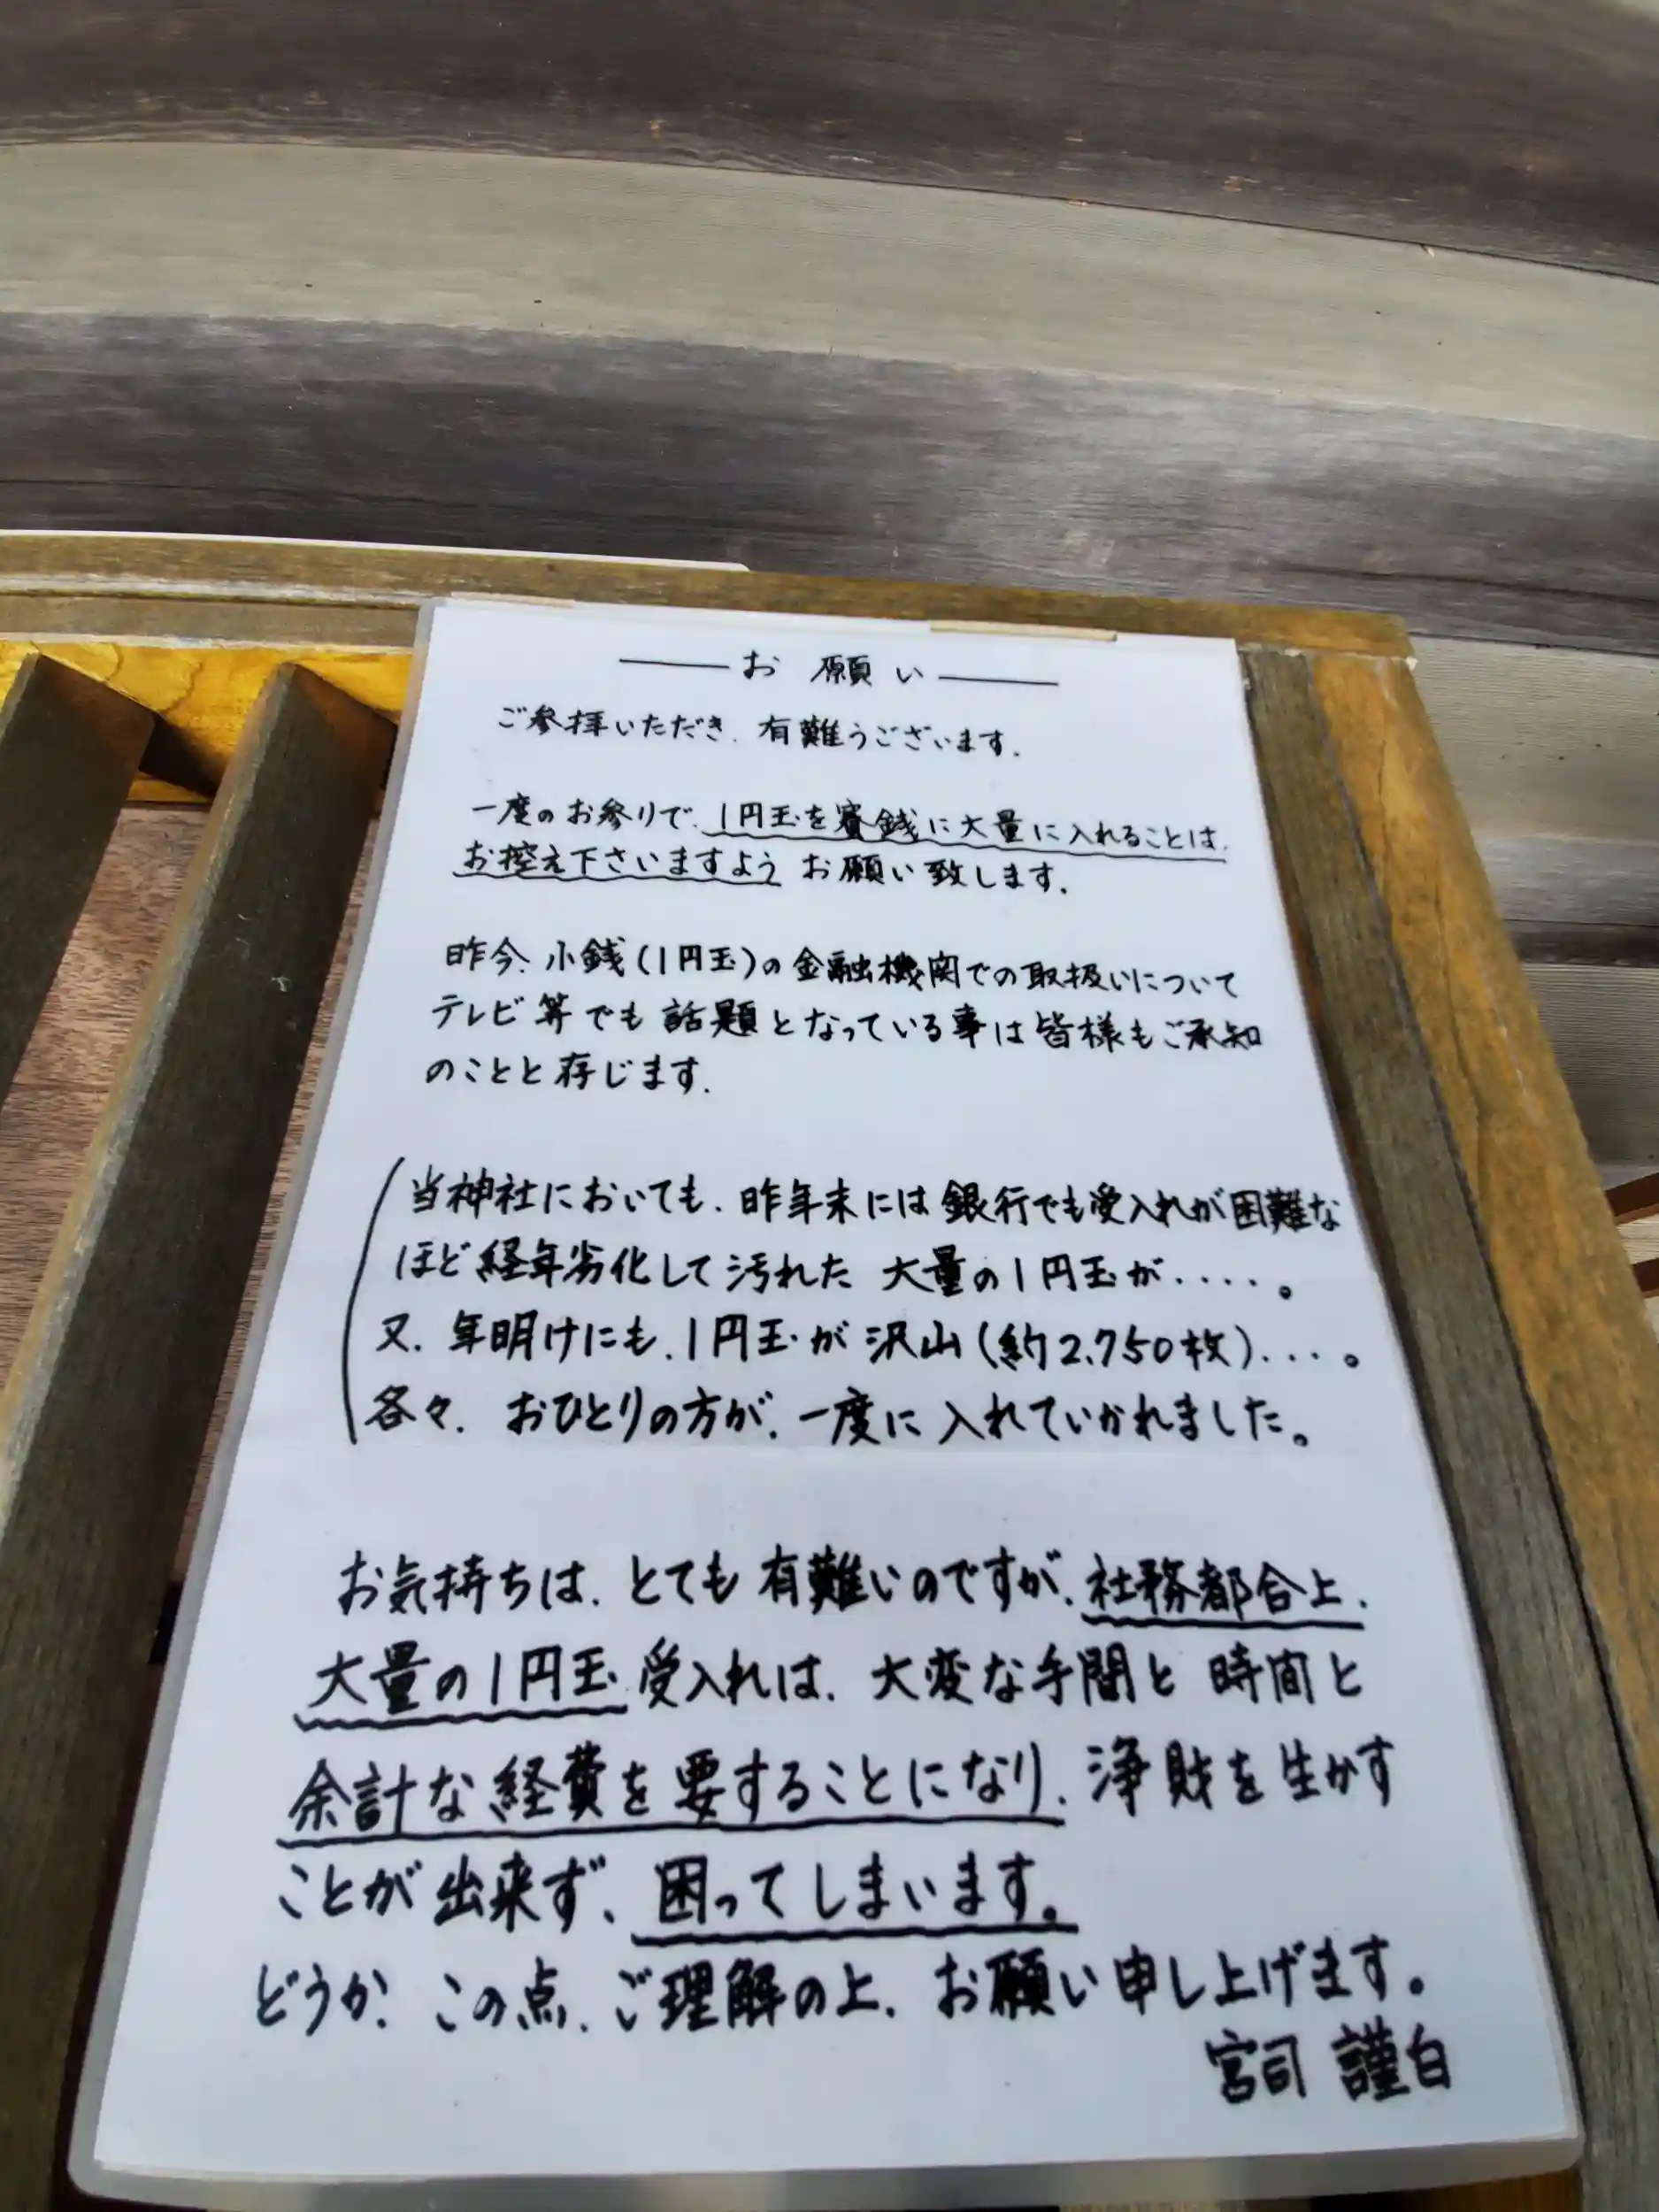 お願い
ご参拝いただき、有難うございます。
一度のお参りで、1円玉を賽銭に大量に入れることは、
お控え下さいますよう お願い致します。
昨今、小銭(1円玉)の金融機関での取扱いについて
テレビ等でも話題となっている事は皆様もご承知
のことと存じます。
当神社においても、昨年末には銀行でも受入れが困難な
ほど経年劣化して汚れた 大量の1円玉が・・・・。
又、年明けにも、1円玉が沢山(約2,750枚)・・・。
各々、おひとりの方が、一度に入れていかれました。
お気持ちは、とても有難いのですが、社務都合上、
大量の1円玉受入れは、大変な手間と時間と
余計な経費を要することになり、浄財を生かす
ことが出来ず、困ってしまいます。
どうか、この点、ご理解の上、お願い申し上げます。
宮司 謹白